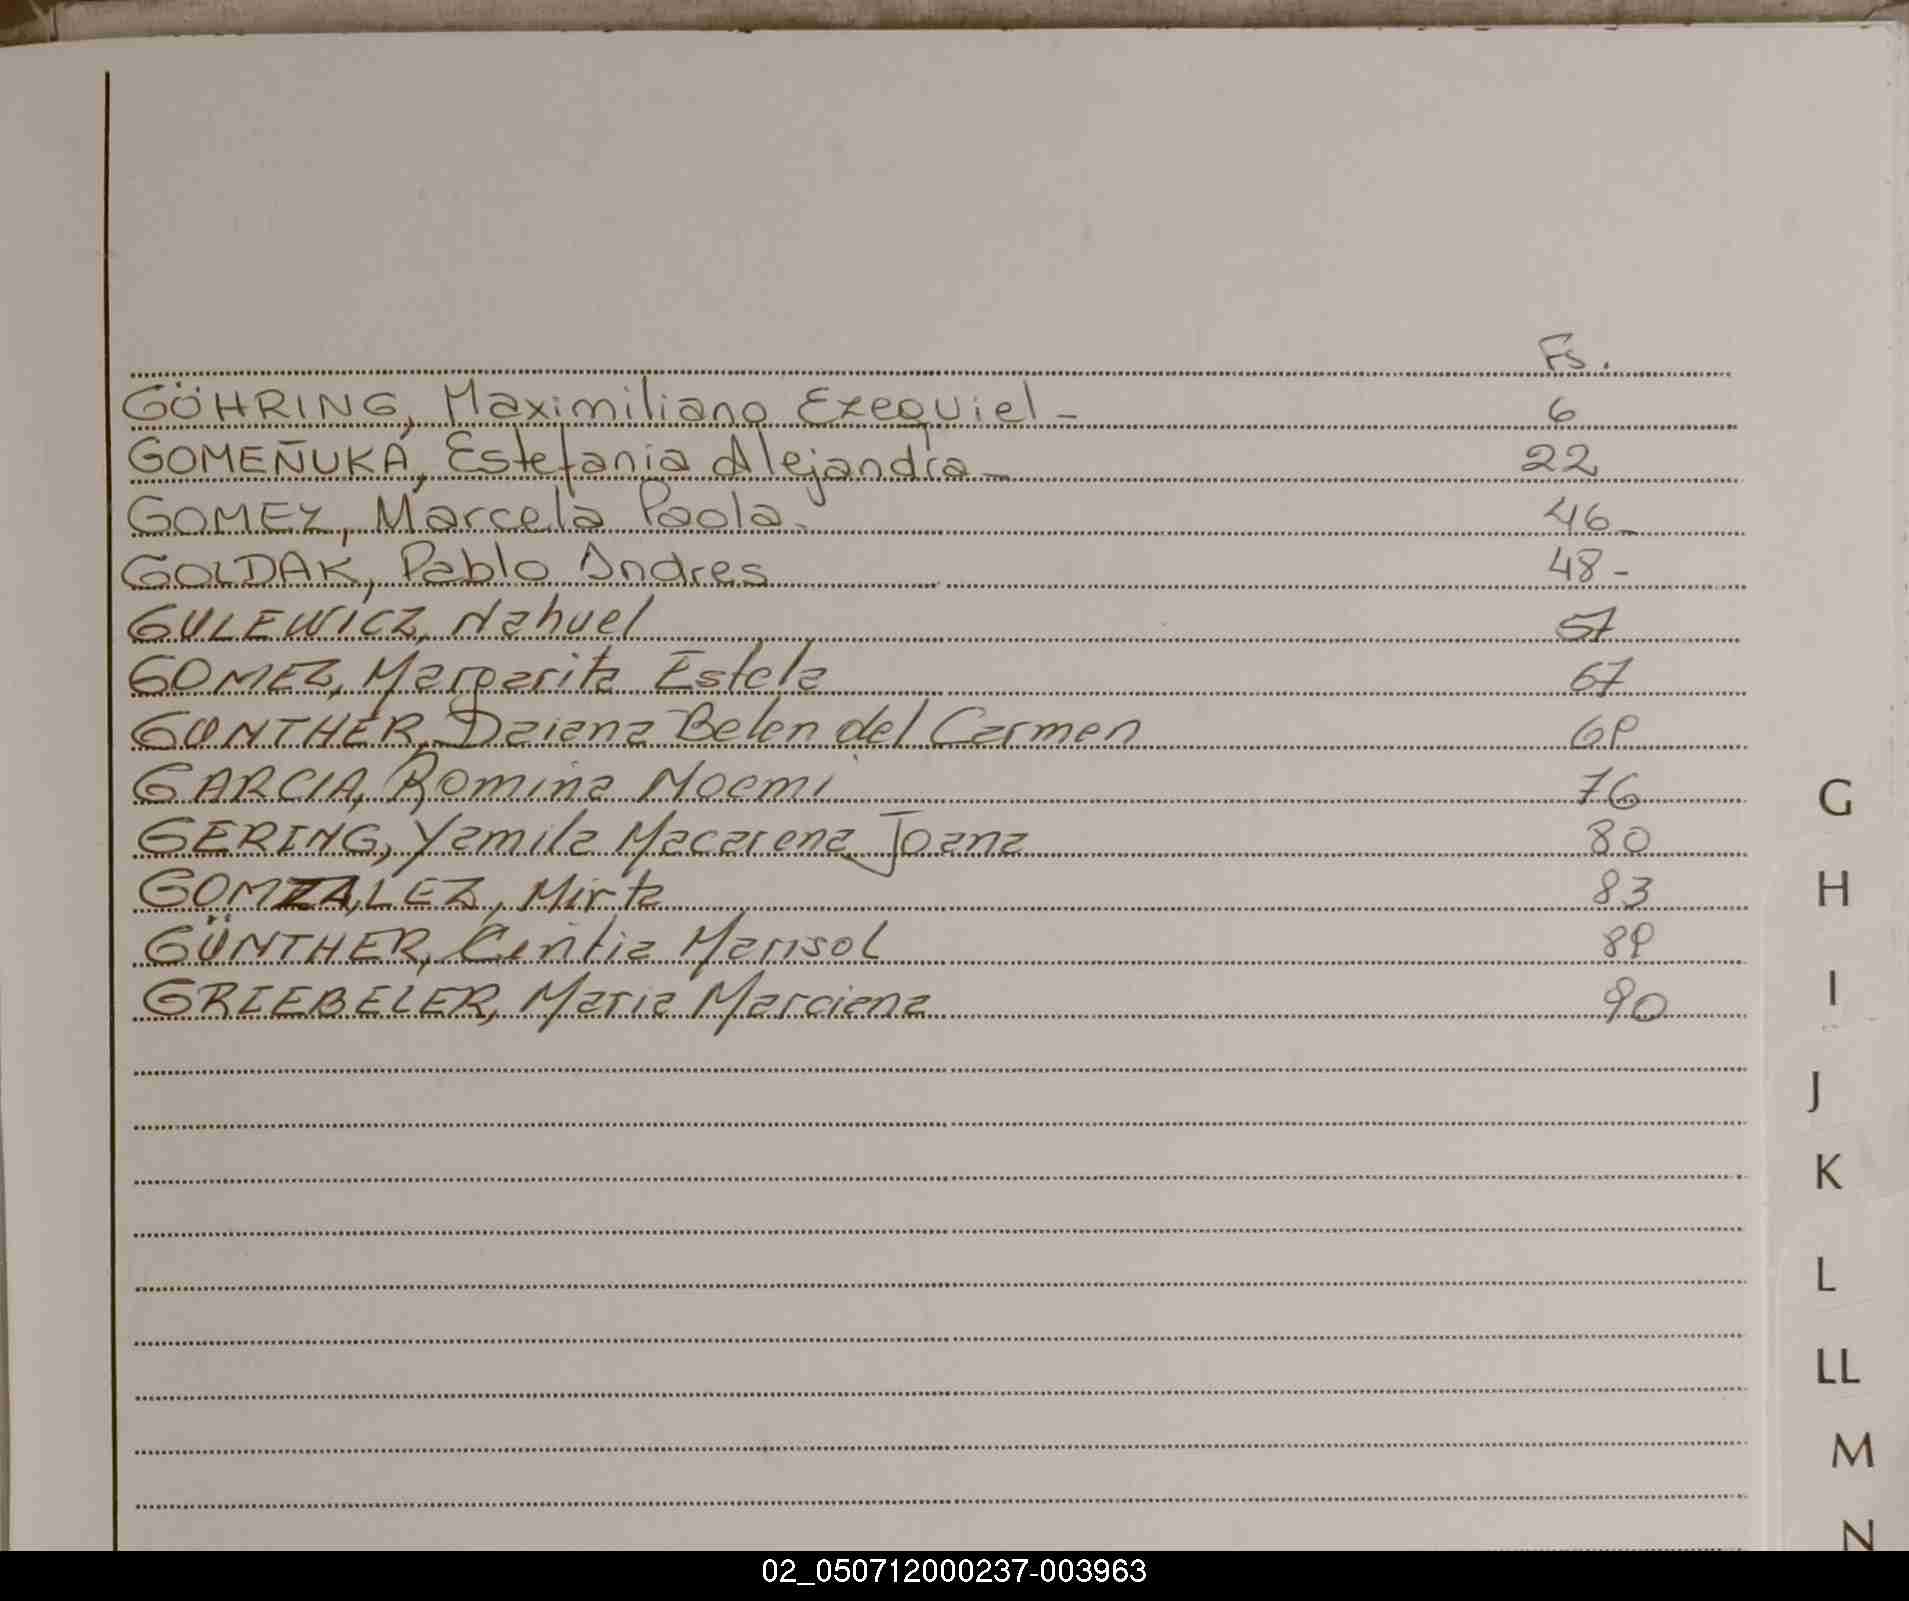 Fs.
GÖHRING, Maximiliano Ezequiel - 6
GOMEÑUKA, Estefania Alejandra - 22
GOMEZ, Marcela Paola. 46-
GOLDAK, Pablo Andres 48-
GULEWICZ, Nahuel 57
GOMEZ, Margarita Estela 67
GUNTHER, Daiana Belen del Carmen 69
GARCIA, Romina Noemi 76
GERING, Yamila Macarena Joana 80
GOMZALEZ, Mirta 83
GÜNTHER, Cintia Marisol 89
GRIEBELER, Maria Marciana 90
G
H
I
J
K
L
LL
M
N
02_050712000237-003963